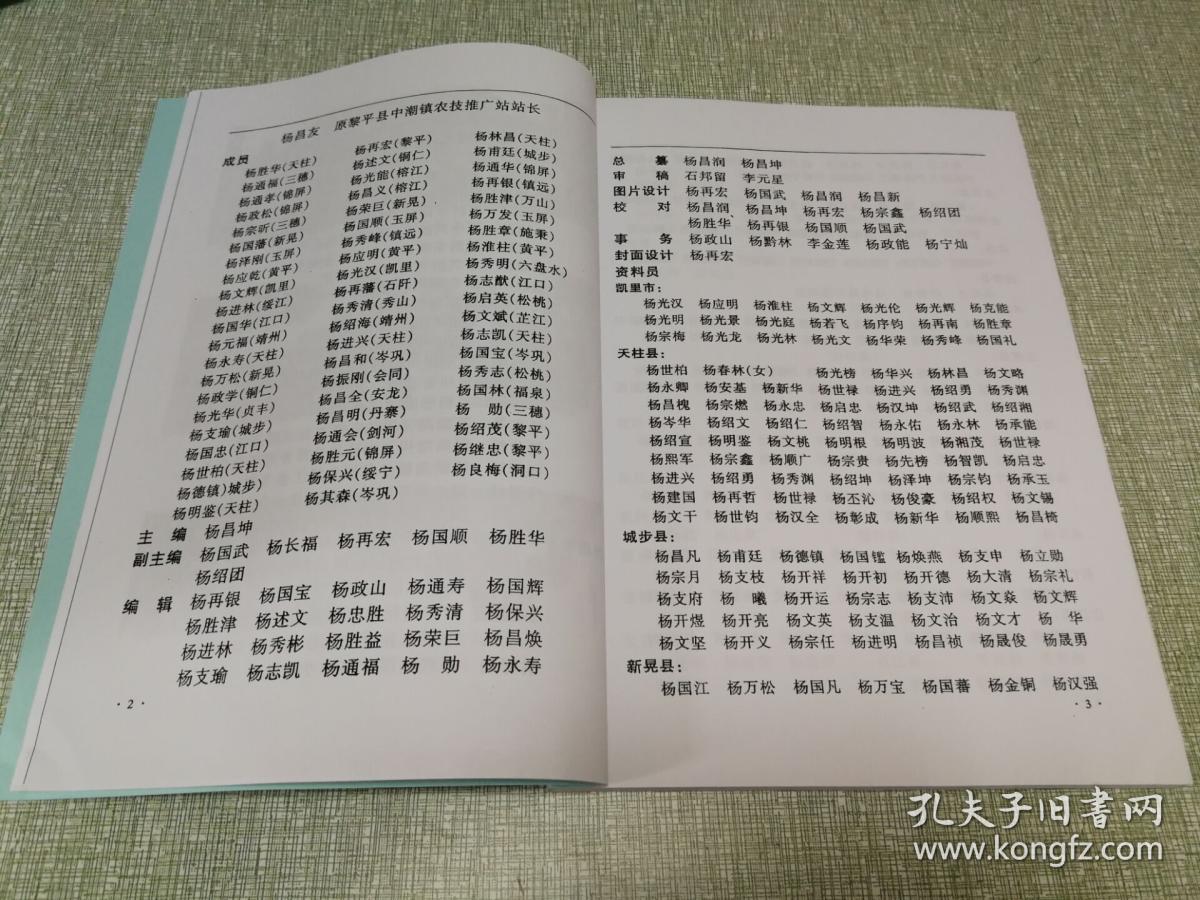 杨昌友 原黎平县中潮镇农技推广站站长
成员
杨胜华(天柱) 杨再宏(黎平) 杨林昌(天柱)
杨通福(三穗) 杨述文(铜仁) 杨甫廷(城步)
杨通孝(锦屏) 杨光能(榕江) 杨通华(锦屏)
杨政松(锦屏) 杨昌义(榕江) 杨再银(镇远)
杨宗昕(三穗) 杨荣巨(新晃) 杨胜津(万山)
杨国藩(新晃) 杨国顺(玉屏) 杨万发(玉屏)
杨泽刚(玉屏) 杨秀峰(镇远) 杨胜章(施秉)
杨应乾(黄平) 杨应明(黄平) 杨淮柱(黄平)
杨文辉(凯里) 杨光汉(凯里) 杨秀明(六盘水)
杨进林(绥江) 杨再藩(石阡) 杨志猷(江口)
杨国华(江口) 杨秀清(秀山) 杨启英(松桃)
杨元福(靖州) 杨绍海(靖州) 杨文斌(芷江)
杨永寿(天柱) 杨进兴(天柱) 杨志凯(天柱)
杨万松(新晃) 杨昌和(岑巩) 杨国宝(岑巩)
杨政学(铜仁) 杨振刚(会同) 杨秀志(松桃)
杨光华(贞丰) 杨昌全(安龙) 杨国林(福泉)
杨支瑜(城步) 杨昌明(丹寨) 杨 勋(三穗)
杨国忠(江口) 杨通会(剑河) 杨绍茂(黎平)
杨世柏(天柱) 杨胜元(锦屏) 杨继忠(黎平)
杨德镇)城步) 杨保兴(绥宁) 杨良梅(洞口)
杨明鉴(天柱) 杨其森(岑巩)
主 编 杨昌坤
副主编 杨国武 杨长福 杨再宏 杨国顺 杨胜华
杨绍团
编 辑 杨再银 杨国宝 杨政山 杨通寿 杨国辉
杨胜津 杨述文 杨忠胜 杨秀清 杨保兴
杨进林 杨秀彬 杨胜益 杨荣巨 杨昌焕
杨支瑜 杨志凯 杨通福 杨 勋 杨永寿
·2·
总 纂 杨昌润 杨昌坤
审 稿 石邦留 李元星
图片设计 杨再宏 杨国武 杨昌润 杨昌新
校 对 杨昌润、杨昌坤 杨再宏 杨宗鑫 杨绍团
杨胜华 杨再银 杨国顺 杨国武
事 务 杨政山 杨黔林 李金莲 杨政能 杨宁灿
封面设计 杨再宏
资料员
凯里市:
杨光汉 杨应明 杨淮柱 杨文辉 杨光伦 杨光辉 杨克能
杨光明 杨光景 杨光庭 杨若飞 杨序钧 杨再南 杨胜章
杨宗梅 杨光龙 杨光林 杨光文 杨华荣 杨秀峰 杨国礼
天柱县:
杨世柏 杨春林(女) 杨光榜 杨华兴 杨林昌 杨文略
杨永卿 杨安基 杨新华 杨世禄 杨进兴 杨绍勇 杨秀渊
杨昌槐 杨宗燃 杨永忠 杨启忠 杨汉坤 杨绍武 杨绍湘
杨岑华 杨绍文 杨绍仁 杨绍智 杨永佑 杨永林 杨承能
杨绍宣 杨明鉴 杨文桃 杨明根 杨明波 杨湘茂 杨世禄
杨熙军 杨宗鑫 杨顺广 杨宗贵 杨先榜 杨智凯 杨启忠
杨进兴 杨绍勇 杨秀渊 杨绍坤 杨泽坤 杨宗钧 杨承玉
杨建国 杨再哲 杨世禄 杨丕沁 杨俊豪 杨绍权 杨文锡
杨文干 杨世钧 杨汉全 杨彰成 杨新华 杨顺熙 杨昌椅
城步县:
杨昌凡 杨甫廷 杨德镇 杨国鑑 杨焕燕 杨支申 杨立勋
杨宗月 杨支枝 杨开祥 杨开初 杨开德 杨大清 杨宗礼
杨支府 杨 曦 杨开运 杨宗志 杨支沛 杨文焱 杨文辉
杨开煜 杨开亮 杨文英 杨支温 杨文治 杨文才 杨 华
杨文坚 杨开义 杨宗任 杨进明 杨昌祯 杨晟俊 杨晟勇
新晃县:
杨国江 杨万松 杨国凡 杨万宝 杨国蕃 杨金铜 杨汉强
·3·
孔夫子旧书网
www.kongfz.com